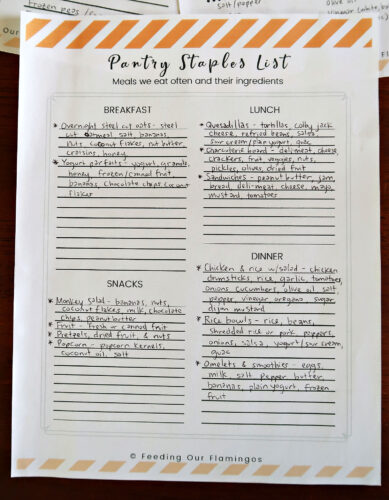 frozen peas /
salt/pepper
olive oil
Pantry Staples List
Meals we eat often and their ingredients
BREAKFAST
* Overnight steel cut oats - steel
cut oatmeal salt, bananas,
nuts, coconut flakes, nut butter
craisins, honey
* Yogurt parfaits - yogurt, granola,
honey, frozen/canned fruit,
bananas, chocolate chips, coconut
flakes
LUNCH
* Quesadillas - tortillas, colby jack
cheese, refried beans, salsa,
sour cream/plain yogurt, guac
* Charcuterie board - deli meat, cheese,
crackers, fruit, veggies, nuts,
pickles, olives, dried fruit
* Sandwiches - peanut butter, jam,
bread, deli-meat, cheese, mayo,
mustard, tomatoes
SNACKS
* Monkey salad - bananas, nuts,
coconut flakes, milk, chocolate
chips, peanut butter
* Fruit - fresh or canned fruit
* Pretzels, dried fruit, & nuts
* Popcorn - popcorn kernels,
coconut oil, salt
DINNER
* Chicken & rice w/salad - chicken
drumsticks, rice, garlic, tomatoes,
onions, cucumbers, olive oil, salt
pepper, vinegar oregano sugar
dijon mustard
* Rice bowls - rice, beans,
shredded rice or pork, peppers,
onions, salsa, yogurt/sour cream,
guac
* Omelets & smoothies - eggs,
milk salt pepper butter
bananas, plain yogurt, frozen
fruit
© Feeding Our Flamingos